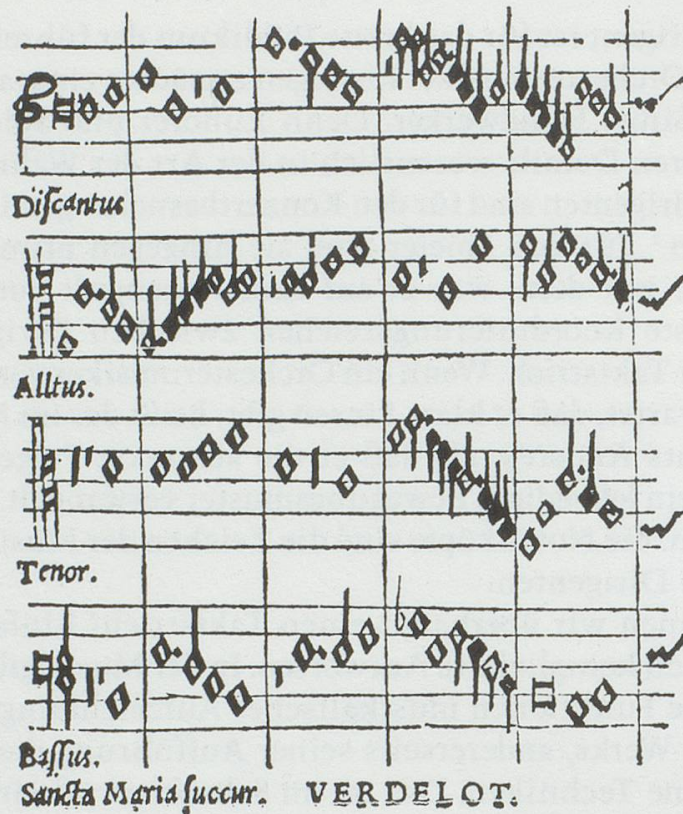 Discantus
Alltus.
Tenor.
Bassus.
Sancta Maria succur. VERDELOT.